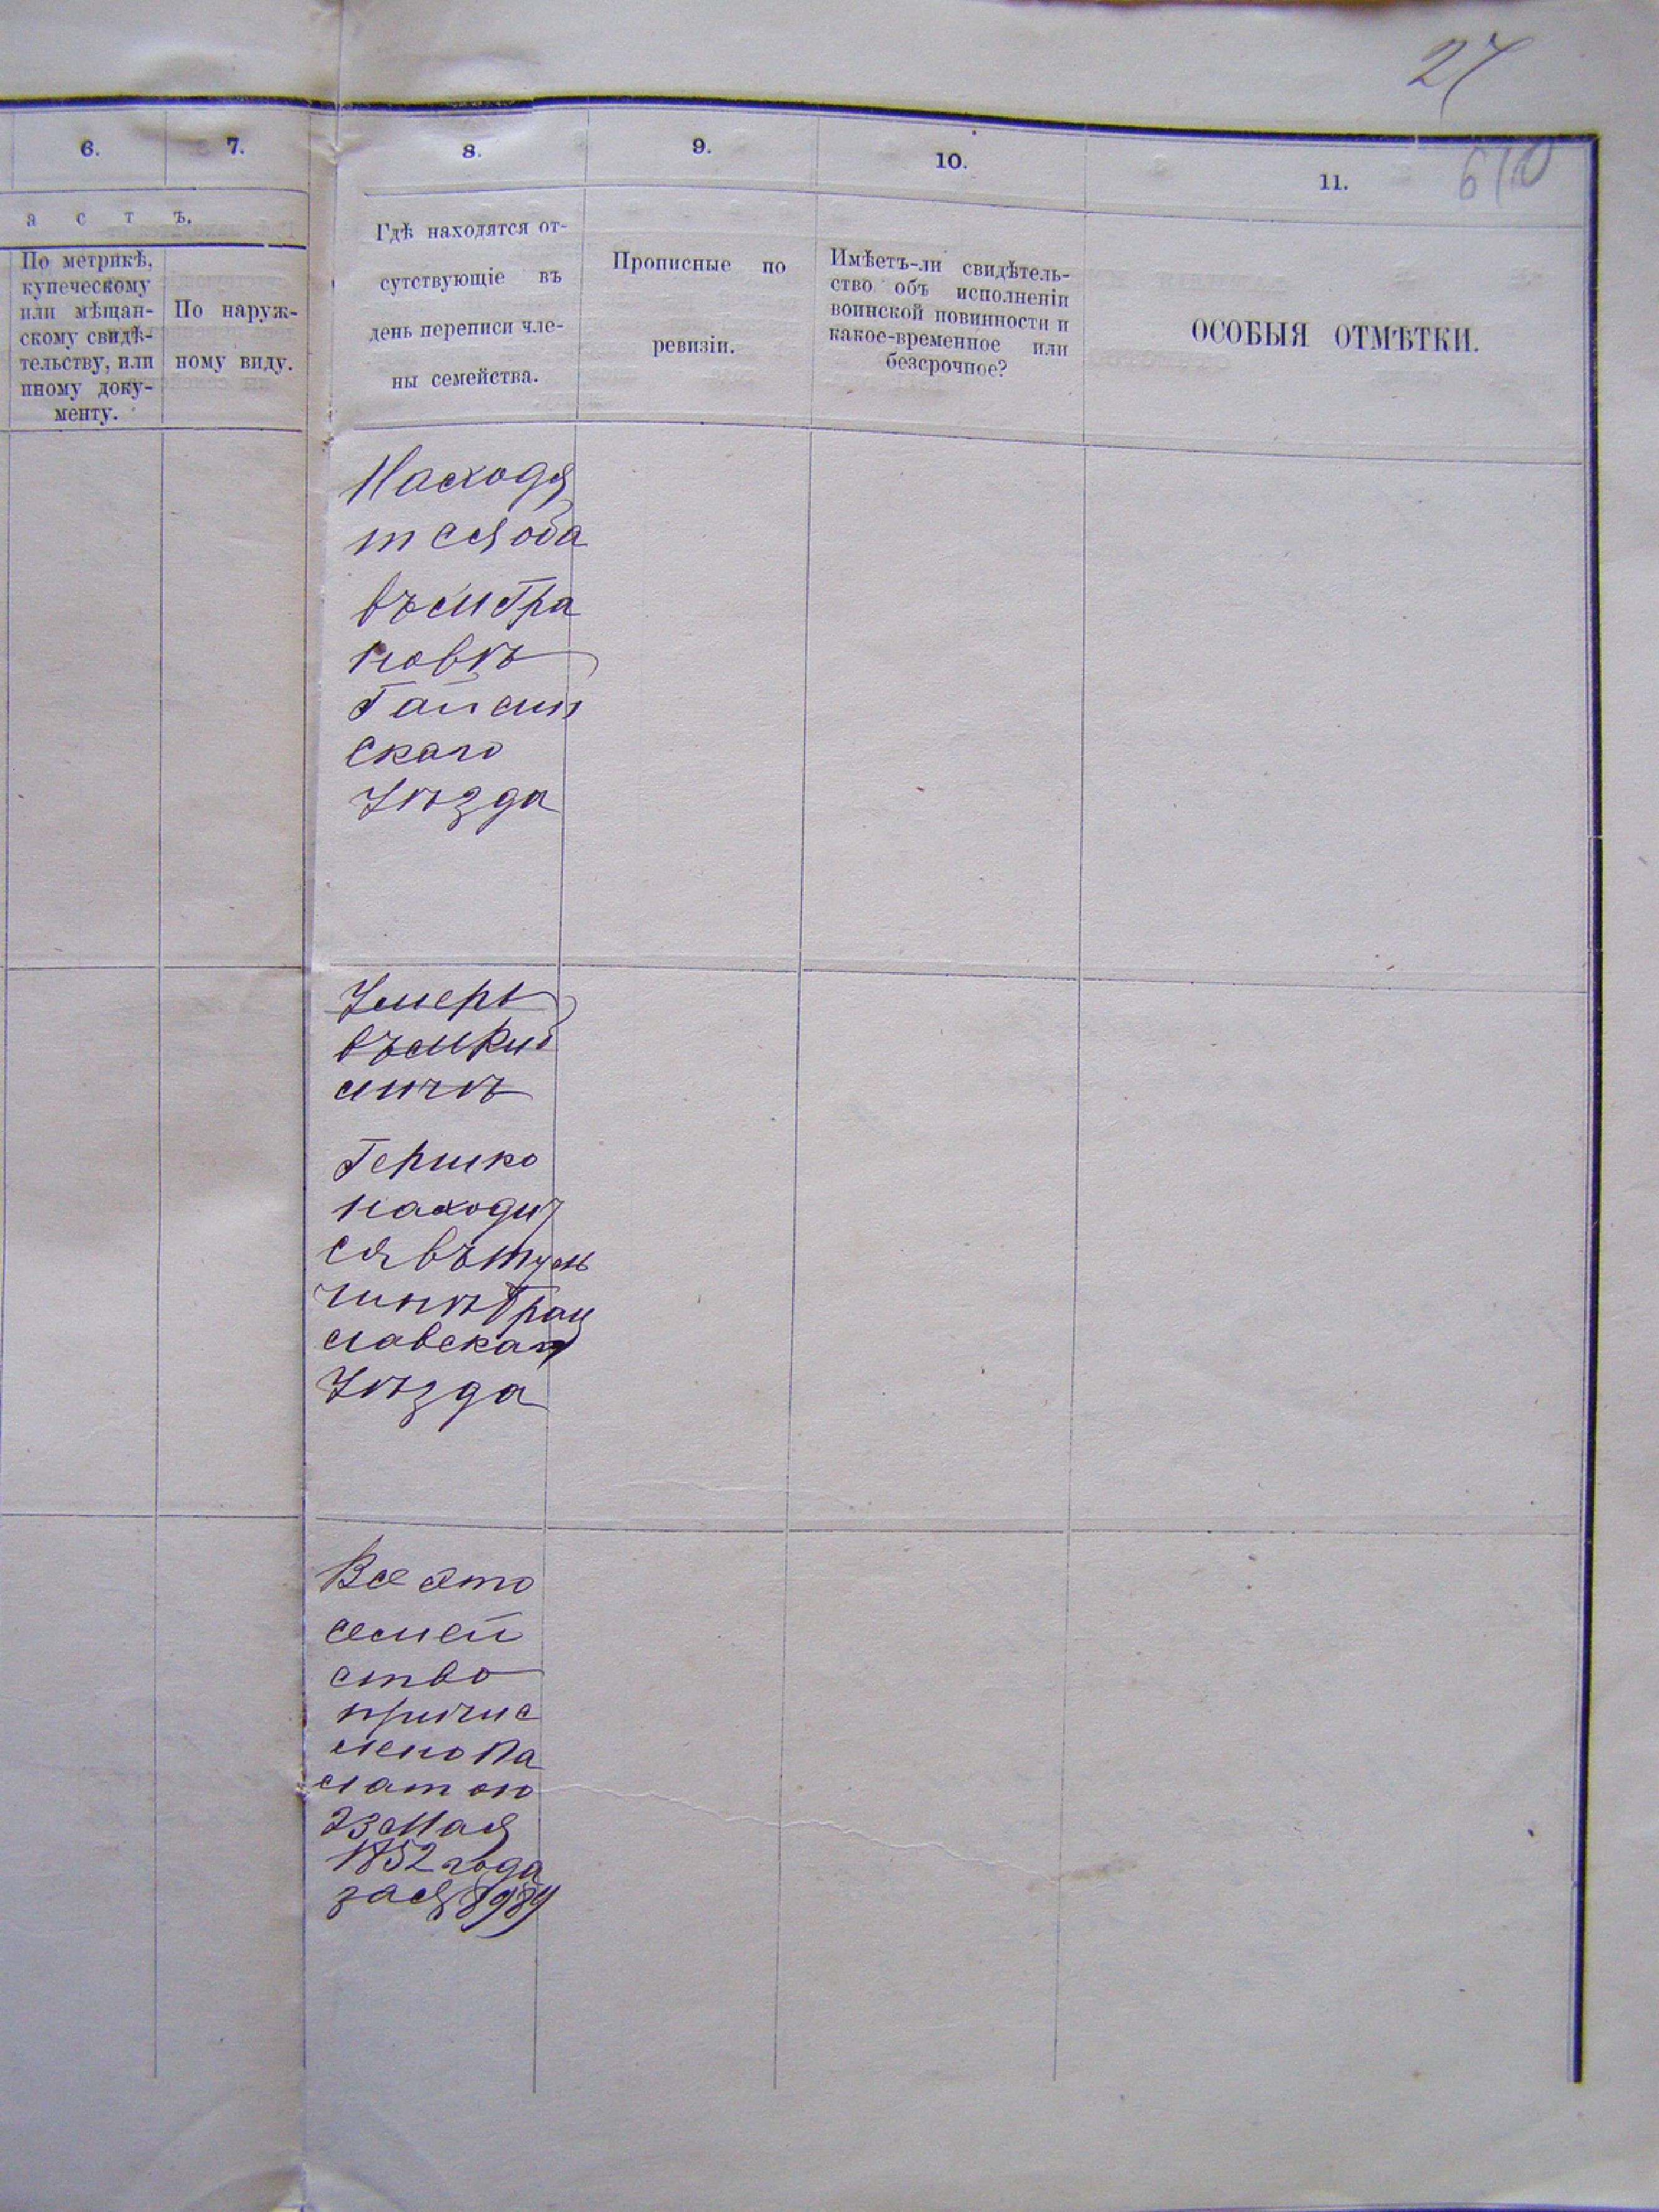 27
610
6.
7.
8.
9.
10.
11.
а с т ъ.
По метрикѣ,
купеческому
или мѣщан-
скому свидѣ-
тельству, или
иному доку-
менту.
По наруж-
ному виду.
Гдѣ находятся от-
сутствующіе въ
день переписи чле-
ны семейства.
Прописные по
ревизіи.
Имѣетъ-ли свидѣтель-
ство объ исполненіи
воинской повинности и
какое-временное или
безсрочное?
ОСОБЫЯ ОТМѢТКИ.
Находя
тся оба
въ м Гра
новѣ
Гайсин
скаго
Уѣзда
Умеръ
въ м Киб
личѣ
Гершко
находит
ся въ м Туль
чинѣ Брац
славскаго
Уѣзда
Все это
семей
ство
причис
лено Па
латою
23 Мая
1852 года
за №